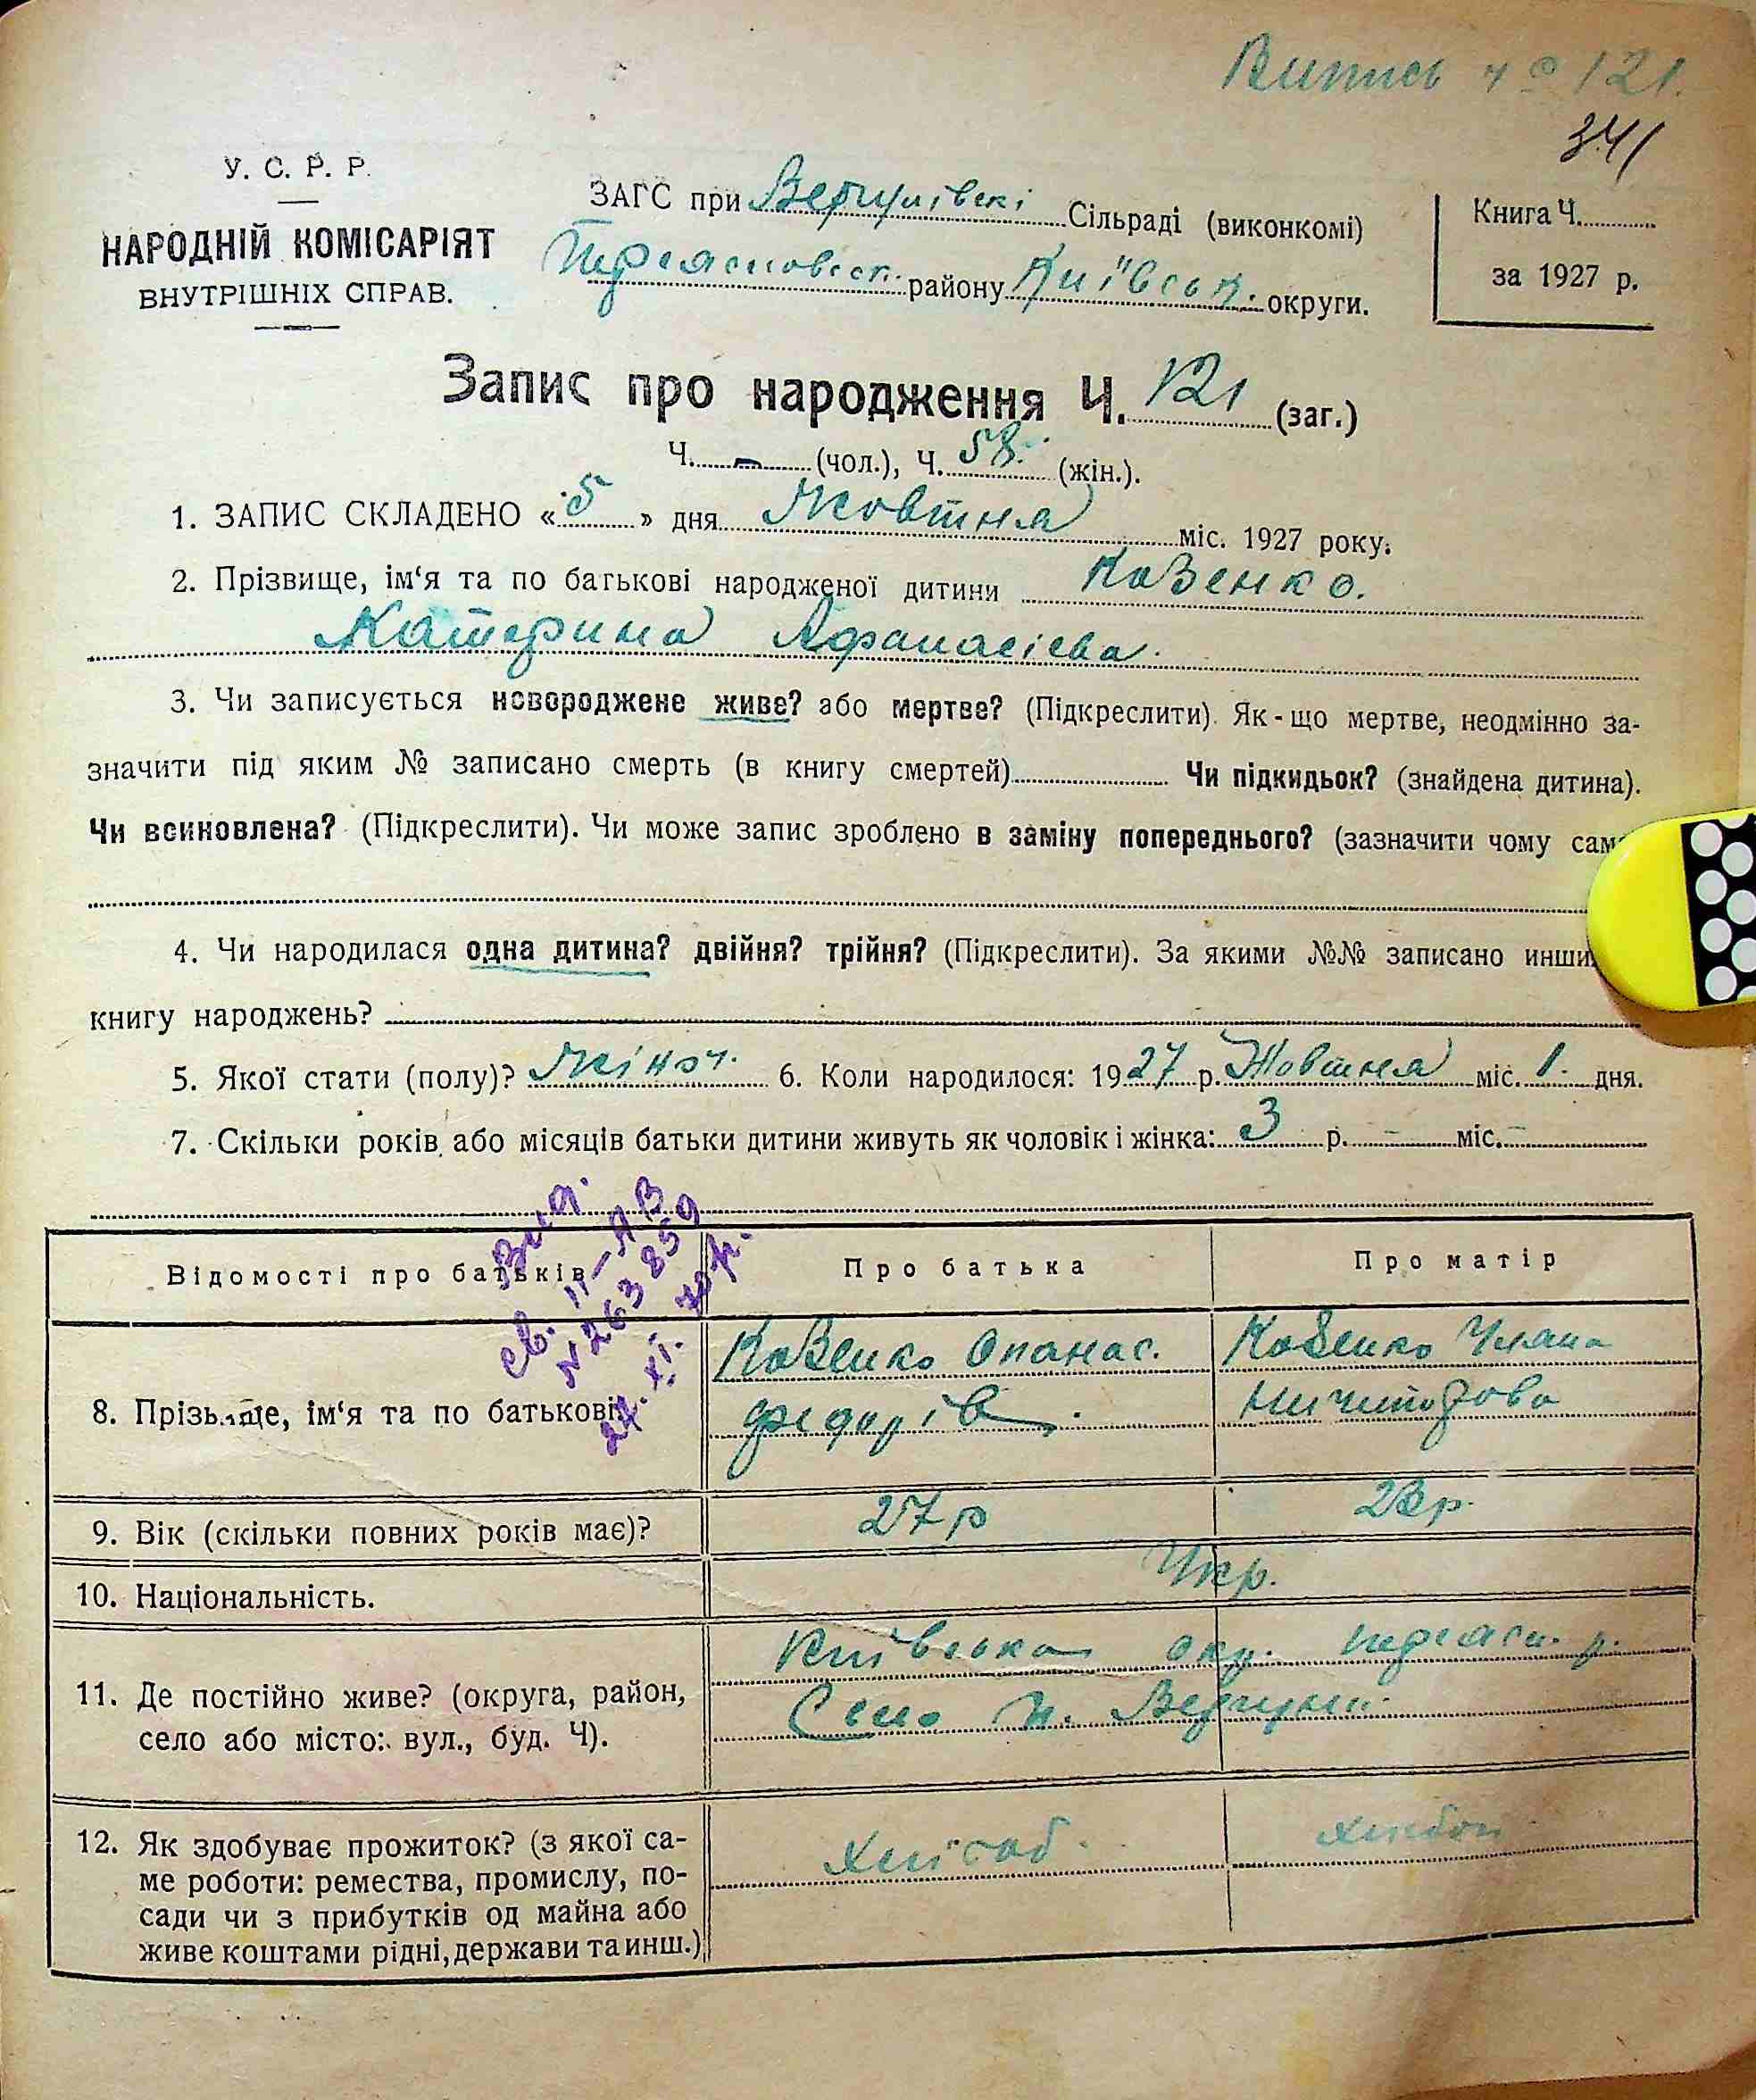 Випись ч ͦ 121.
341
У. С. Р. Р.
НАРОДНІЙ КОМІСАРІЯТ
ВНУТРІШНІХ СПРАВ.
ЗАГС при Вергунівскі Сільраді (виконкомі)
Переясловськ. району Київськ. округи.
Книга Ч.
за 1927 р.
Запис про народження Ч. 121 (заг.)
Ч. – (чол.), Ч. 58. (жін.).
1. ЗАПИС СКЛАДЕНО «5» дня Жовтня міс. 1927 року.
2. Прізвище, ім‘я та по батькові народженої дитини Ковзенко.
Катерина Афанасієва.
3. Чи записується новороджене живе? або мертве? (Підкреслити). Як-що мертве, неодмінно за-
значити під яким № записано смерть (в книгу смертей) Чи підкидьок? (знайдена дитина).
Чи всиновлена? (Підкреслити). Чи може запис зроблено в заміну попереднього? (зазначити чому сам
4. Чи народилася одна дитина? двійня? трійня? (Підкреслити). За якими №№ записано инши
книгу народжень?
5. Якої стати (полу)? Жіноч. 6. Коли народилося: 1927 р. Жовтня міс. 1. дня.
7. Скільки років або місяців батьки дитини живуть як чоловік і жінка: 3 р. – міс. –
Вид.
св. II–АВ
N 263859
27. XI. 70 р.
Відомості про батьків
Про батька
Про матір
8. Прізьвище, ім‘я та по батькові
Опанас.
Федорів.
Уляна
Ничипорова
9. Вік (скільки повних років має)?
27 р
23 р.
10. Національність.
Укр.
11. Де постійно живе? (округа, район,
село або місто: вул., буд. Ч).
Київська окр. Переясл. р.
Село
12. Як здобуває прожиток? (з якої са-
ме роботи: ремества, промислу, по-
сади чи з прибутків од майна або
живе коштами рідні, держави та инш.)